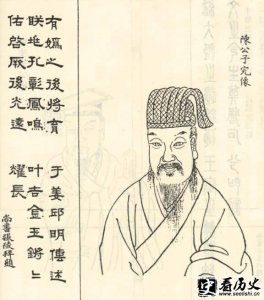 陳公子完像
有媯之後將育于姜邱明傳述
朕兆孔彰鳳鳴叶吉金玉鏘〻
佑啓厥後光遠燿長
尚書張陵拜題
看历史